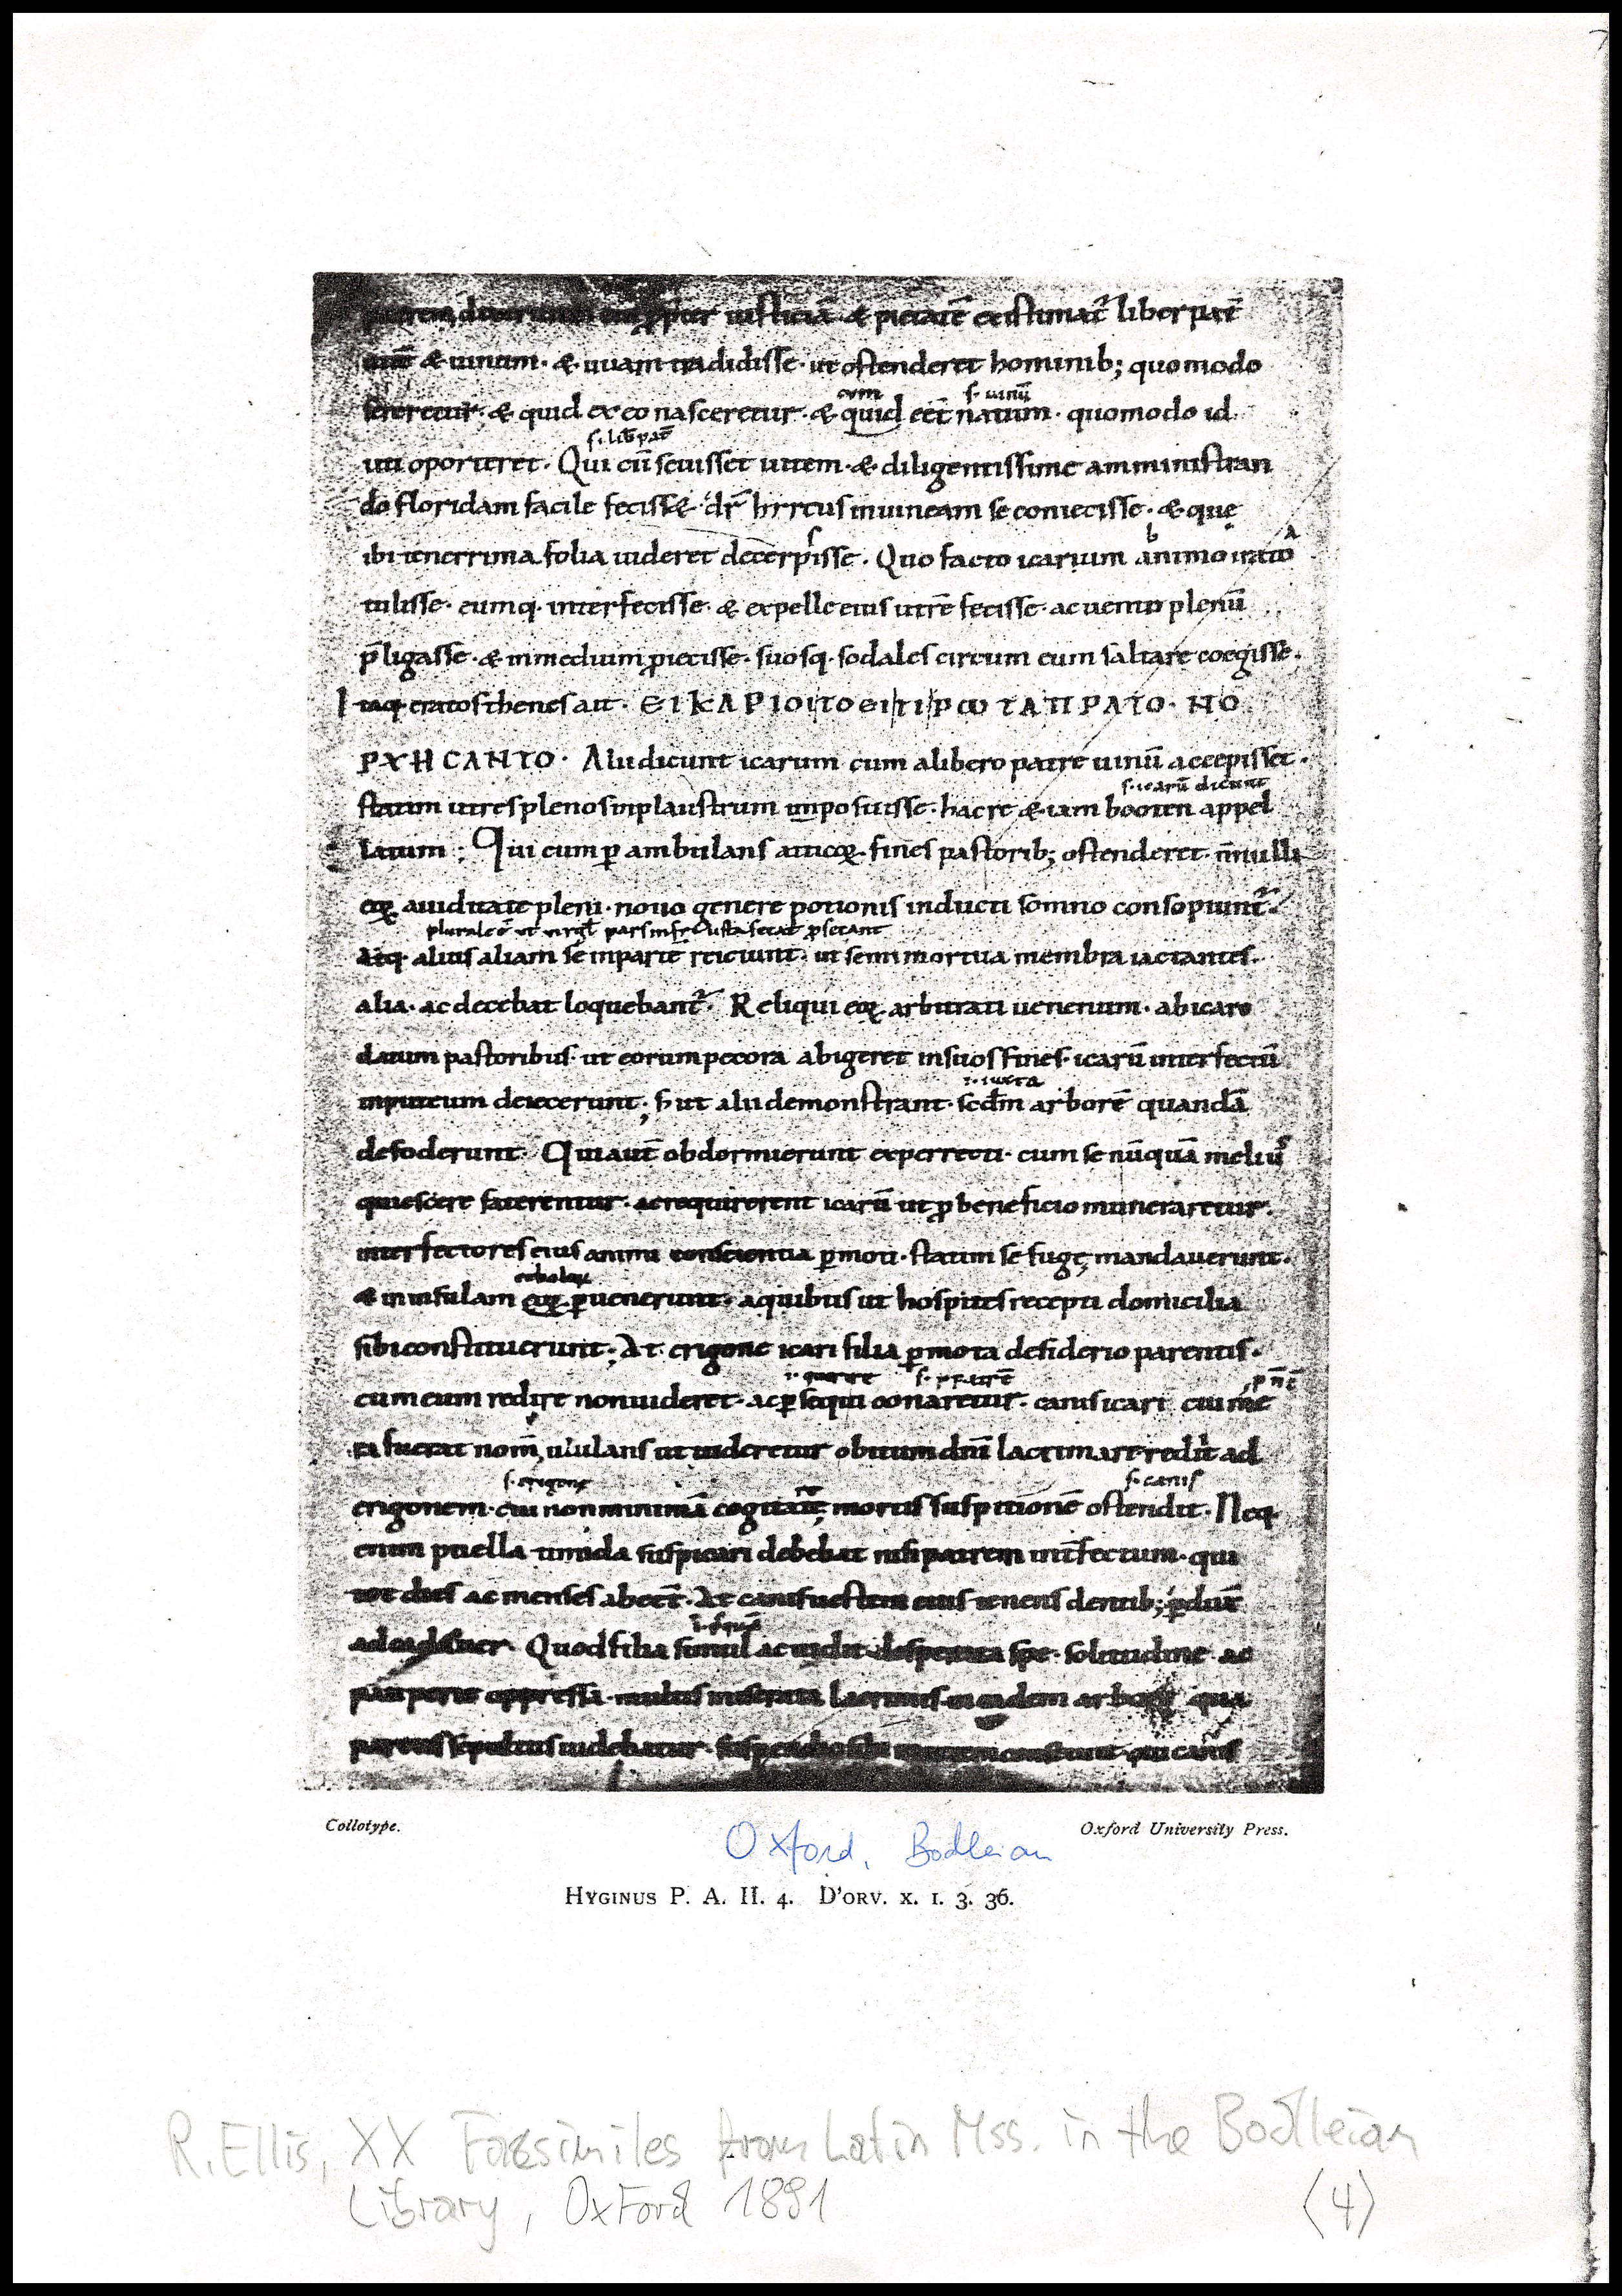 iusticiã & pietatē existimat̄ liber patrē
& uinum · & uuam tradidisse · ut ostenderet hominib; quomodo
oum s· uinū
sereretur · & quid ex eo nasceretur · & quid eēt natum · quomodo id
s· lib̄ pat̄
uti oporteret · Qui cū seuisset uitem · & diligentissime amministran
do floridam facile fecisset · dr̄ hircus in uineam se coniecisse · & que
b a
ibi tenerrima folia uideret decerpsisse · Quo facto icarium animo irato
tulisse · eumq· interfecisse · & ex pelle eius utrē fecisse · ac uento plenū
p̄ligasse · & in medium proiecisse · suosq· sodales circum eum saltare coegisse ·
Itaq· eratosthenes ait · ЄΙΚΑΡΙΟΙΤΟЄΙΤΙΡωΤΑΠΡΑΤΟ· ΗΟ
ΡΧΗCΑΝΤΟ · Alii dicunt icarum cum a libero patre uinū accepisset ·
s· icarū dicunt
statim utres plenos in plaustrum imposuisse · hac re & iam booten appel
latum ; Qui cum p ambulans atticoꝝ fines pastorib; ostenderet · n̄nulli
eoꝝ auiditate pleni · nouo genere potionis inducti somno consopiunt̄ ·
plurale ē ut uirgil pars in frusta secat
Atq· alius aliam se in partē reiciunt · ut semimortua membra iactantes ·
alia · ac decebat loquebant̄ · Reliqui eoꝝ arbitrati uenenum · ab icaro
datum pastoribus · ut eorum pecora abigeret in suos fines · icarū interfectū
i· iuxta
in puteum deiecerunt ; S; ut alii demonstrant · scdm arborē quandā
defoderunt · Qui aūt obdormierunt experrecti · cum se nūquā meliꝰ
quiescere faterentur · ac requirerent icarū ut p beneficio muneraretur ·
interfectores eius animi conscientia pmoti · statim se fugę mandauerunt ·
& in insulam eoꝝ puenerunt · a quibus ut hospites recepti domicilia
sibi constituerunt ; At erigone icari filia pmota desiderio parentis ·
i· querere s· patrē
cum eum redire non uideret · ac psequi conaretur · canis icari cui mē
ra fuerat nom̄, ululans ut uideretur obitum dn̄i lacrimare redit ad
s· erigone s· canis
erigonem · cui non minimā cogitatę mortis suspitionē ostendit · Neq·
enim puella timida suspicari debebat nisi patrem int̄fectum · qui
tot dies ac menses abeēt · At canis uestem eius tenens dentib; pduxit
ad cadauer · Quod filia simul ac uidit desperata spe · solitudine ac
pauperie oppressa · multis miserata lacrimis · in eadem arbore qua
parens sepultus uidebatur · canis
Collotype.
Oxford University Press.
Oxford, Bodleian
Hyginus P. A. II. 4. D'orv. x. 1. 3. 36.
R. Ellis, XX Facsimiles from Latin Mss. in the Bodleian
Library, Oxford 1891
(4)